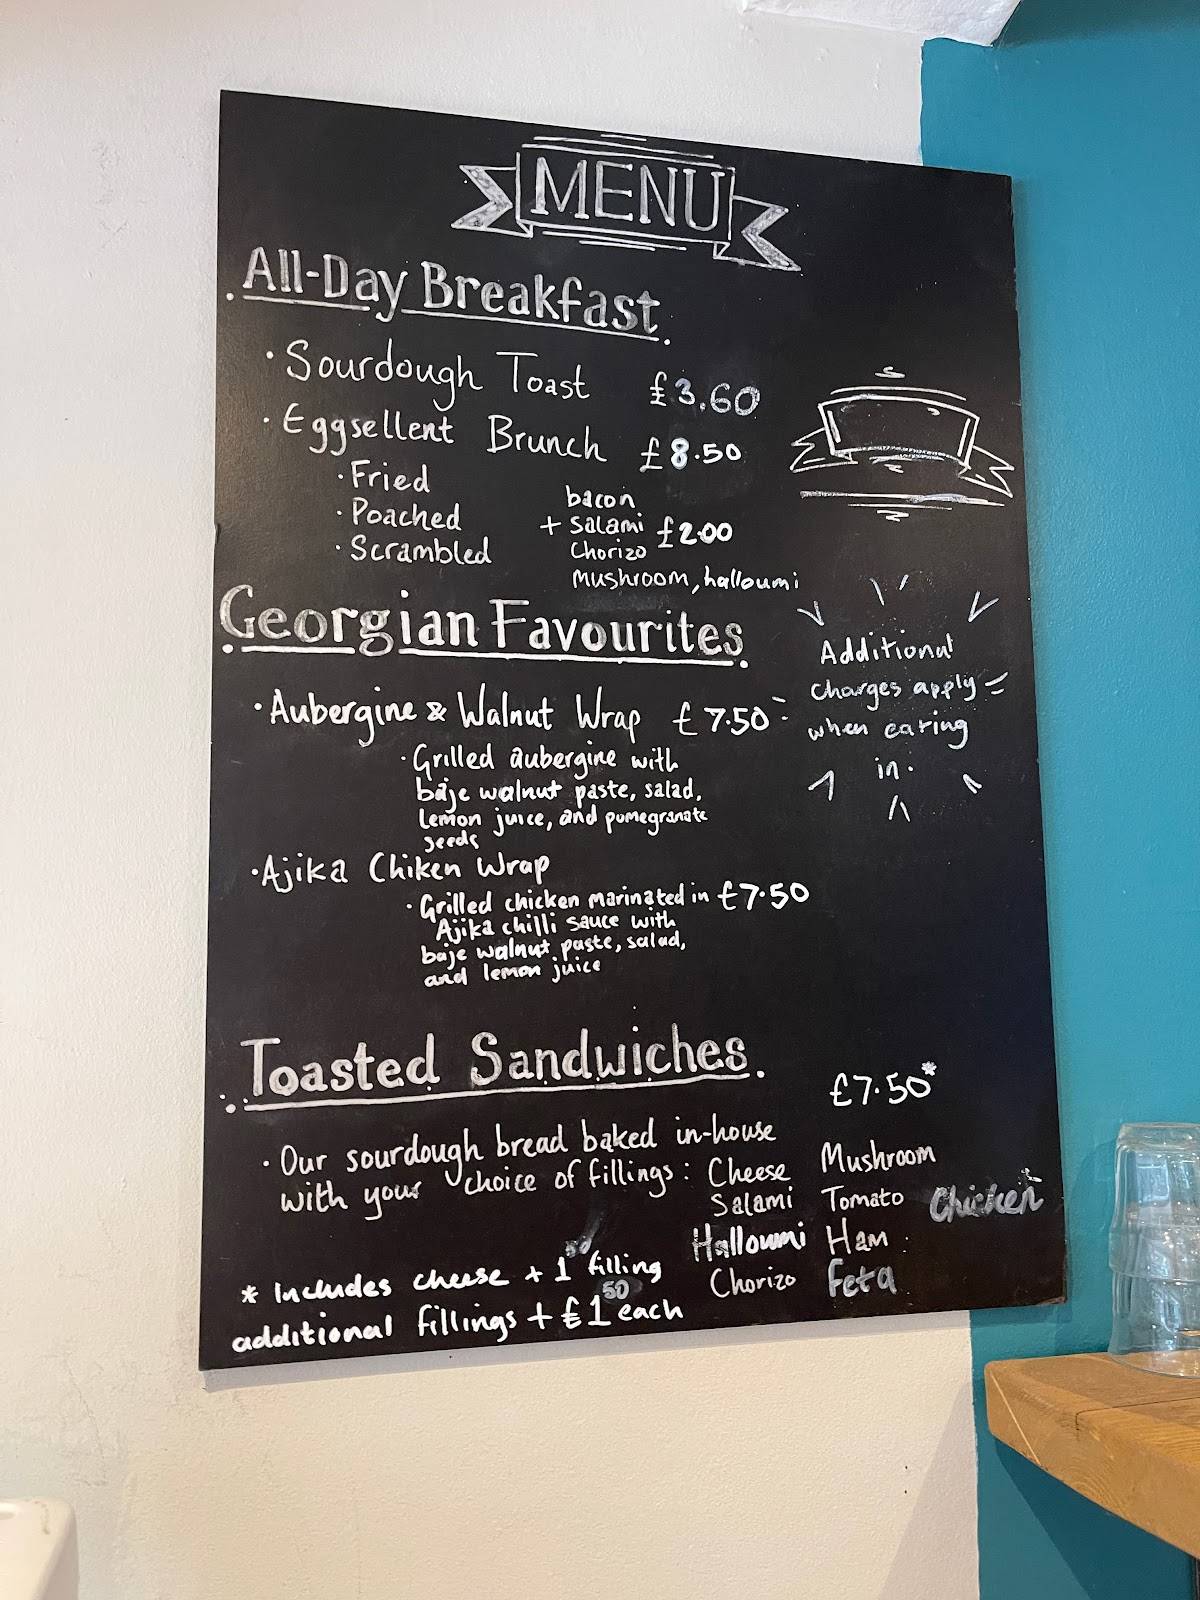 MENU
All-Day Breakfast
· Sourdough Toast £3.60
· Eggsellent Brunch £8.50
· Fried
· Poached
· Scrambled
bacon
+ Salami £2.00
Chorizo
Mushroom, halloumi
Georgian Favourites
· Aubergine & Walnut Wrap £7.50
· Grilled aubergine with
baje walnut paste, salad,
lemon juice, and pomegranate
seeds
· Ajika Chiken Wrap
· Grilled chicken marinated in £7.50
Ajika chilli sauce with
baje walnut paste, salad,
and lemon juice
Additional
charges apply
when eating
in.
Toasted Sandwiches
£7.50*
· Our sourdough bread baked in-house
with your choice of fillings: Cheese Mushroom
Salami Tomato Chicken
Halloumi Ham
Chorizo Feta
* Includes cheese + 1 filling
additional fillings + £1 50 each